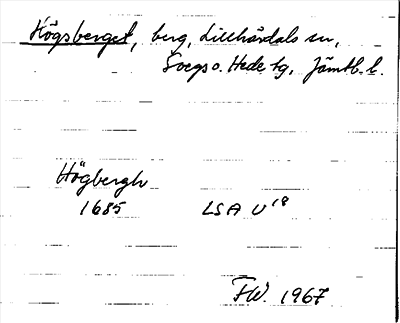 Högsberget, berg, Lillhärdals sn,
Svegs o. Hede tg, Jämtl. l.
Högbergh
1685 LSA U18
FW. 1967